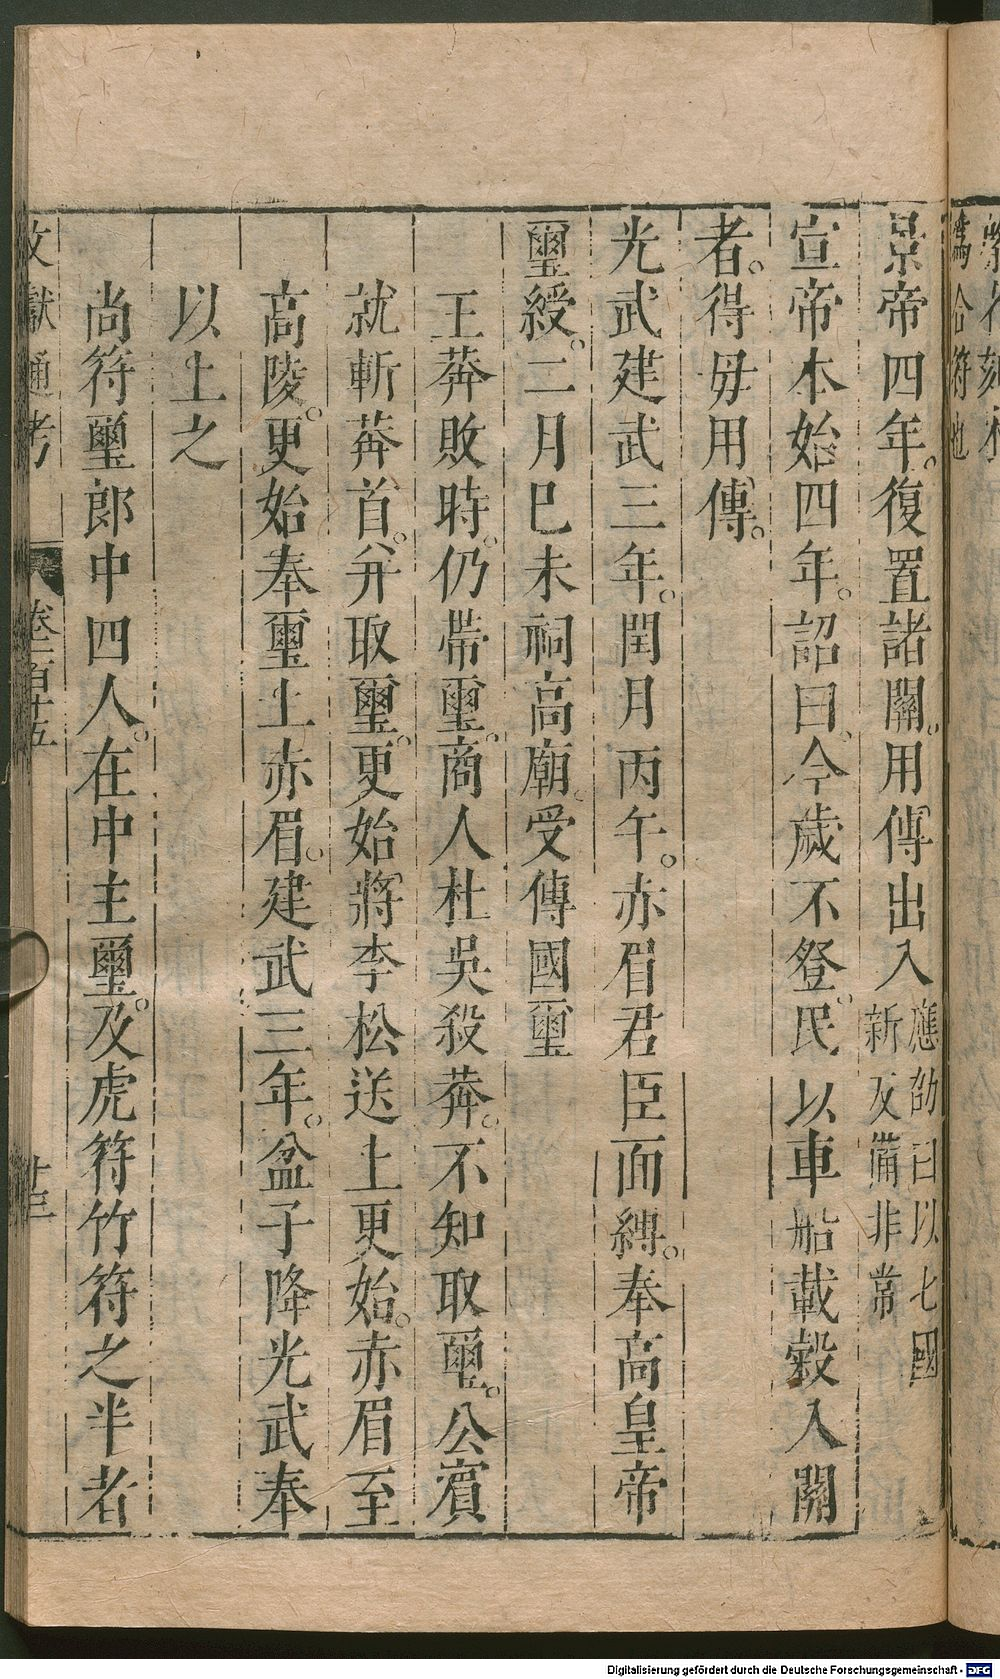 景帝四年。復置諸關。用傳出入應劭曰以七國
新反備非常
宣帝本始四年。詔曰。今歲不登。民以車船載穀入關
者。得毋用傳。
光武建武三年。閏月丙午。赤眉君臣面縛。奉高皇帝
璽綬。二月巳未祠高廟。受傳國璽
王莽敗時。仍帶璽。商人杜吳殺莽。不知取璽。公賓
就斬莽首。并取璽。更始將李松送上更始。赤眉至
高陵。更始奉璽上赤眉。建武三年。盆子降光武奉
以上之
尚符璽郎中四人。在中主璽。及虎符竹符之半者
文獻通考
卷一百十五
廿三
Digitalisierung gefördert durch die Deutsche Forschungsgemeinschaft - DFG